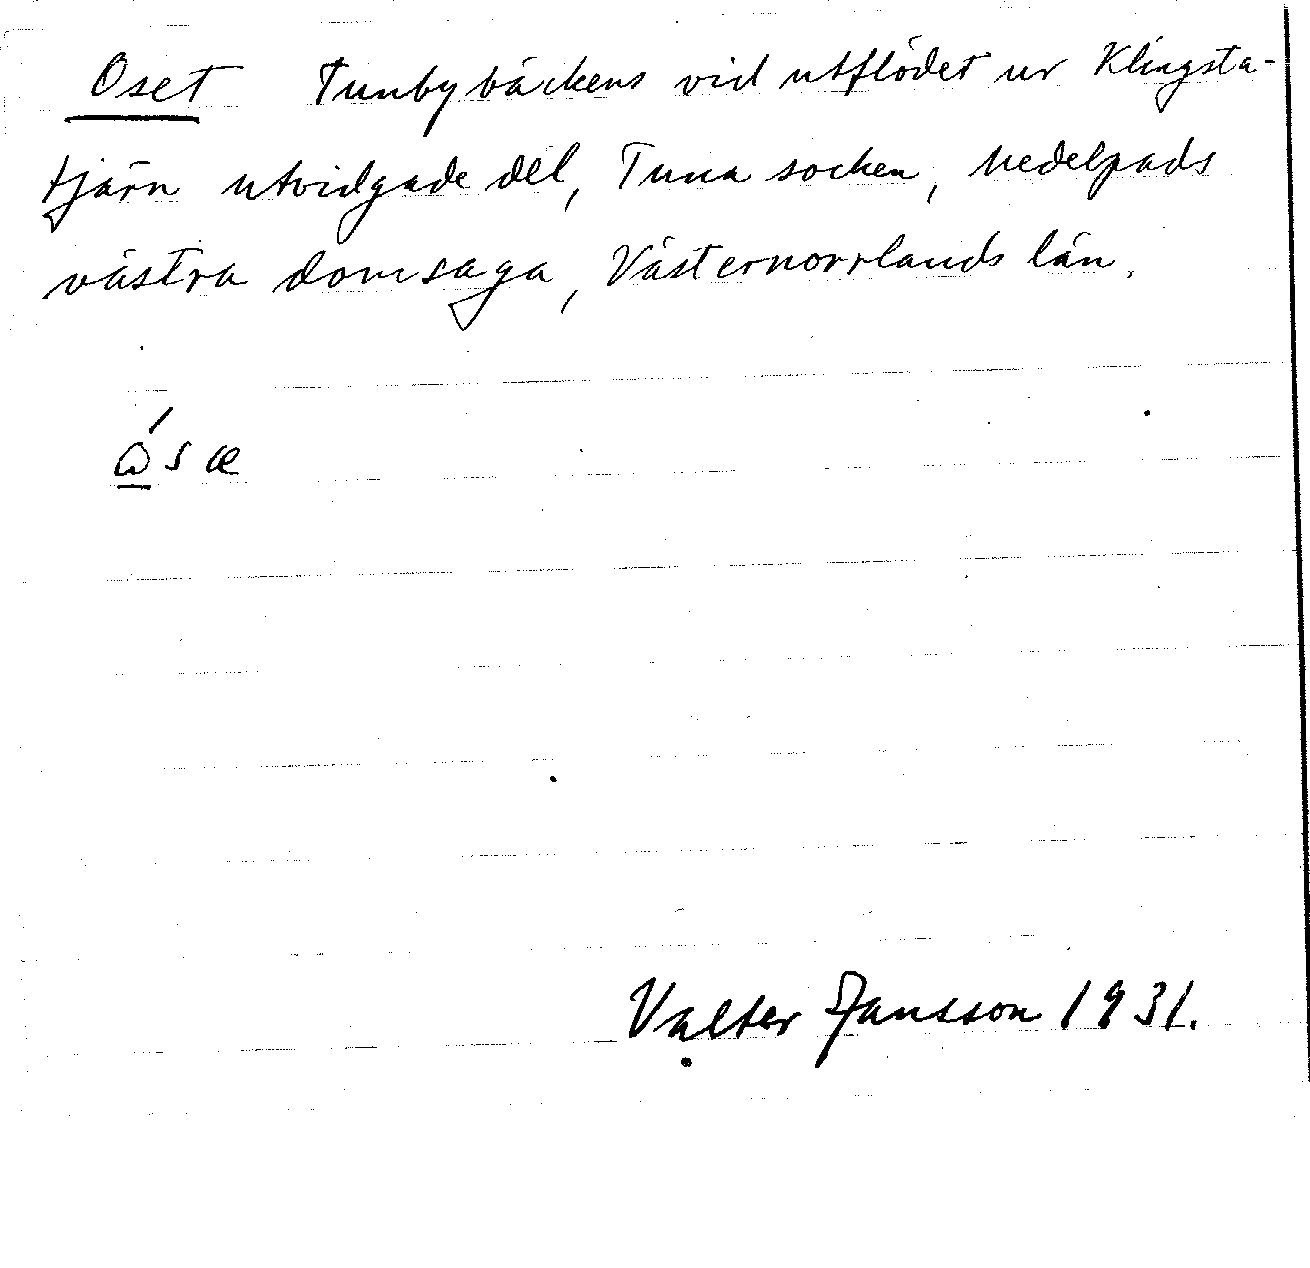 Oset Tunbybäckens vid utflödet ur Klingsta-
tjärn utvidgade del, Tuna socken, Medelpads
västra domsaga, Västernorrlands län.
ώ̲sæ
Valter Jansson 1931.